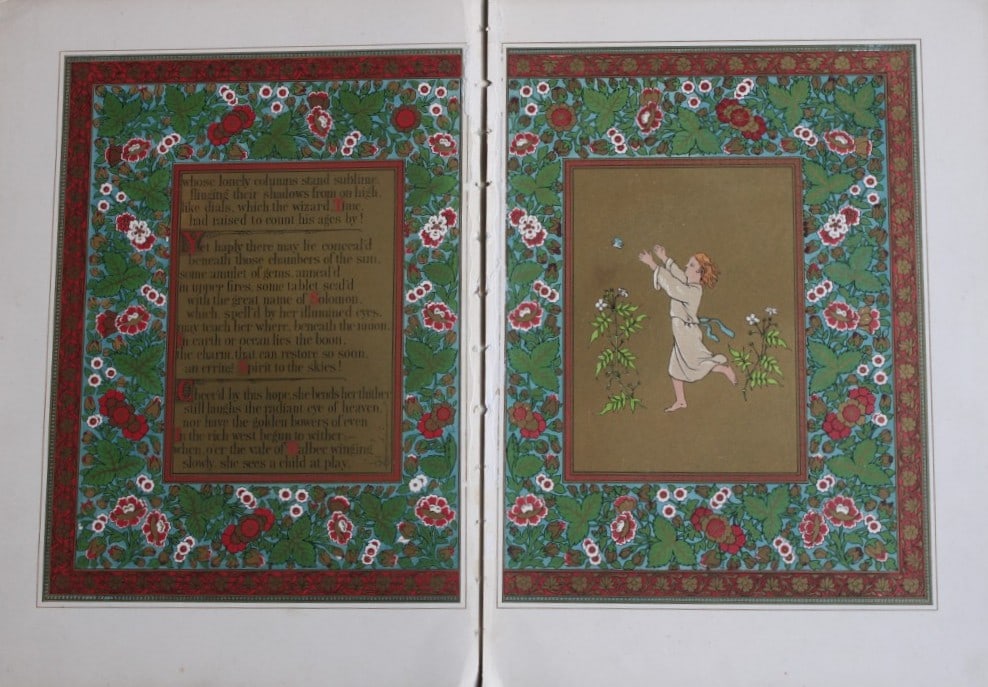 whose lonely columns stand sublime,
flinging their shadows from on high,
like dials, which the wizard Time,
had raised to count his ages by!
Yet haply there may lie conceal'd
beneath those chambers of the sun,
some amulet of gems, anneal'd
in upper fires, some tablet seal'd
with the great name of Solomon,
which, spell'd by her illumined eyes,
may teach her where, beneath the moon,
in earth or ocean lies the boon,
the charm, that can restore so soon,
an erring Spirit to the skies!
Cheer'd by this hope, she bends her thither
still laughs the radiant eye of heaven,
nor have the golden bowers of even
in the rich west begun to wither—
when, o'er the vale of Balbec winging
slowly, she sees a child at play,